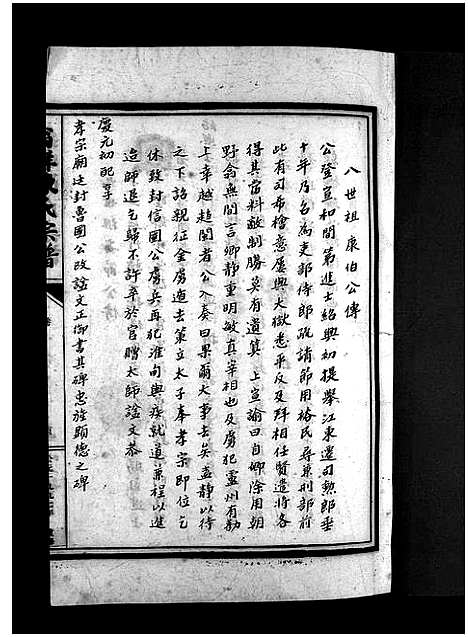 八世祖康伯公傳
公登宣和間第進士紹興初提舉江東遷司勲郎垂
十年乃名為吏部侍郎疏請節用裕民尋兼刑部前
此有司布檜意屢興大獄悉平反及拜相任賢造將各
得其當料敵制勝莫有遺算 上宣諭曰自卿除用朝
野翕無間言卿靜重明敏真宰相也及虜犯廬州有勸
上幸越趨閩者公入奏曰果爾大事去矣盍靜以待
之下詔親征金虜遁去策立太子奉孝宗即位乞
休致封信國公虜兵再犯淮甸輿疾就道兼程以進
造師退乞歸不許卒於官贈太師諡文恭
慶元初配享
孝宗廟廷封魯國公改諡文正御書其碑忠旌顯德之碑
氏宗譜